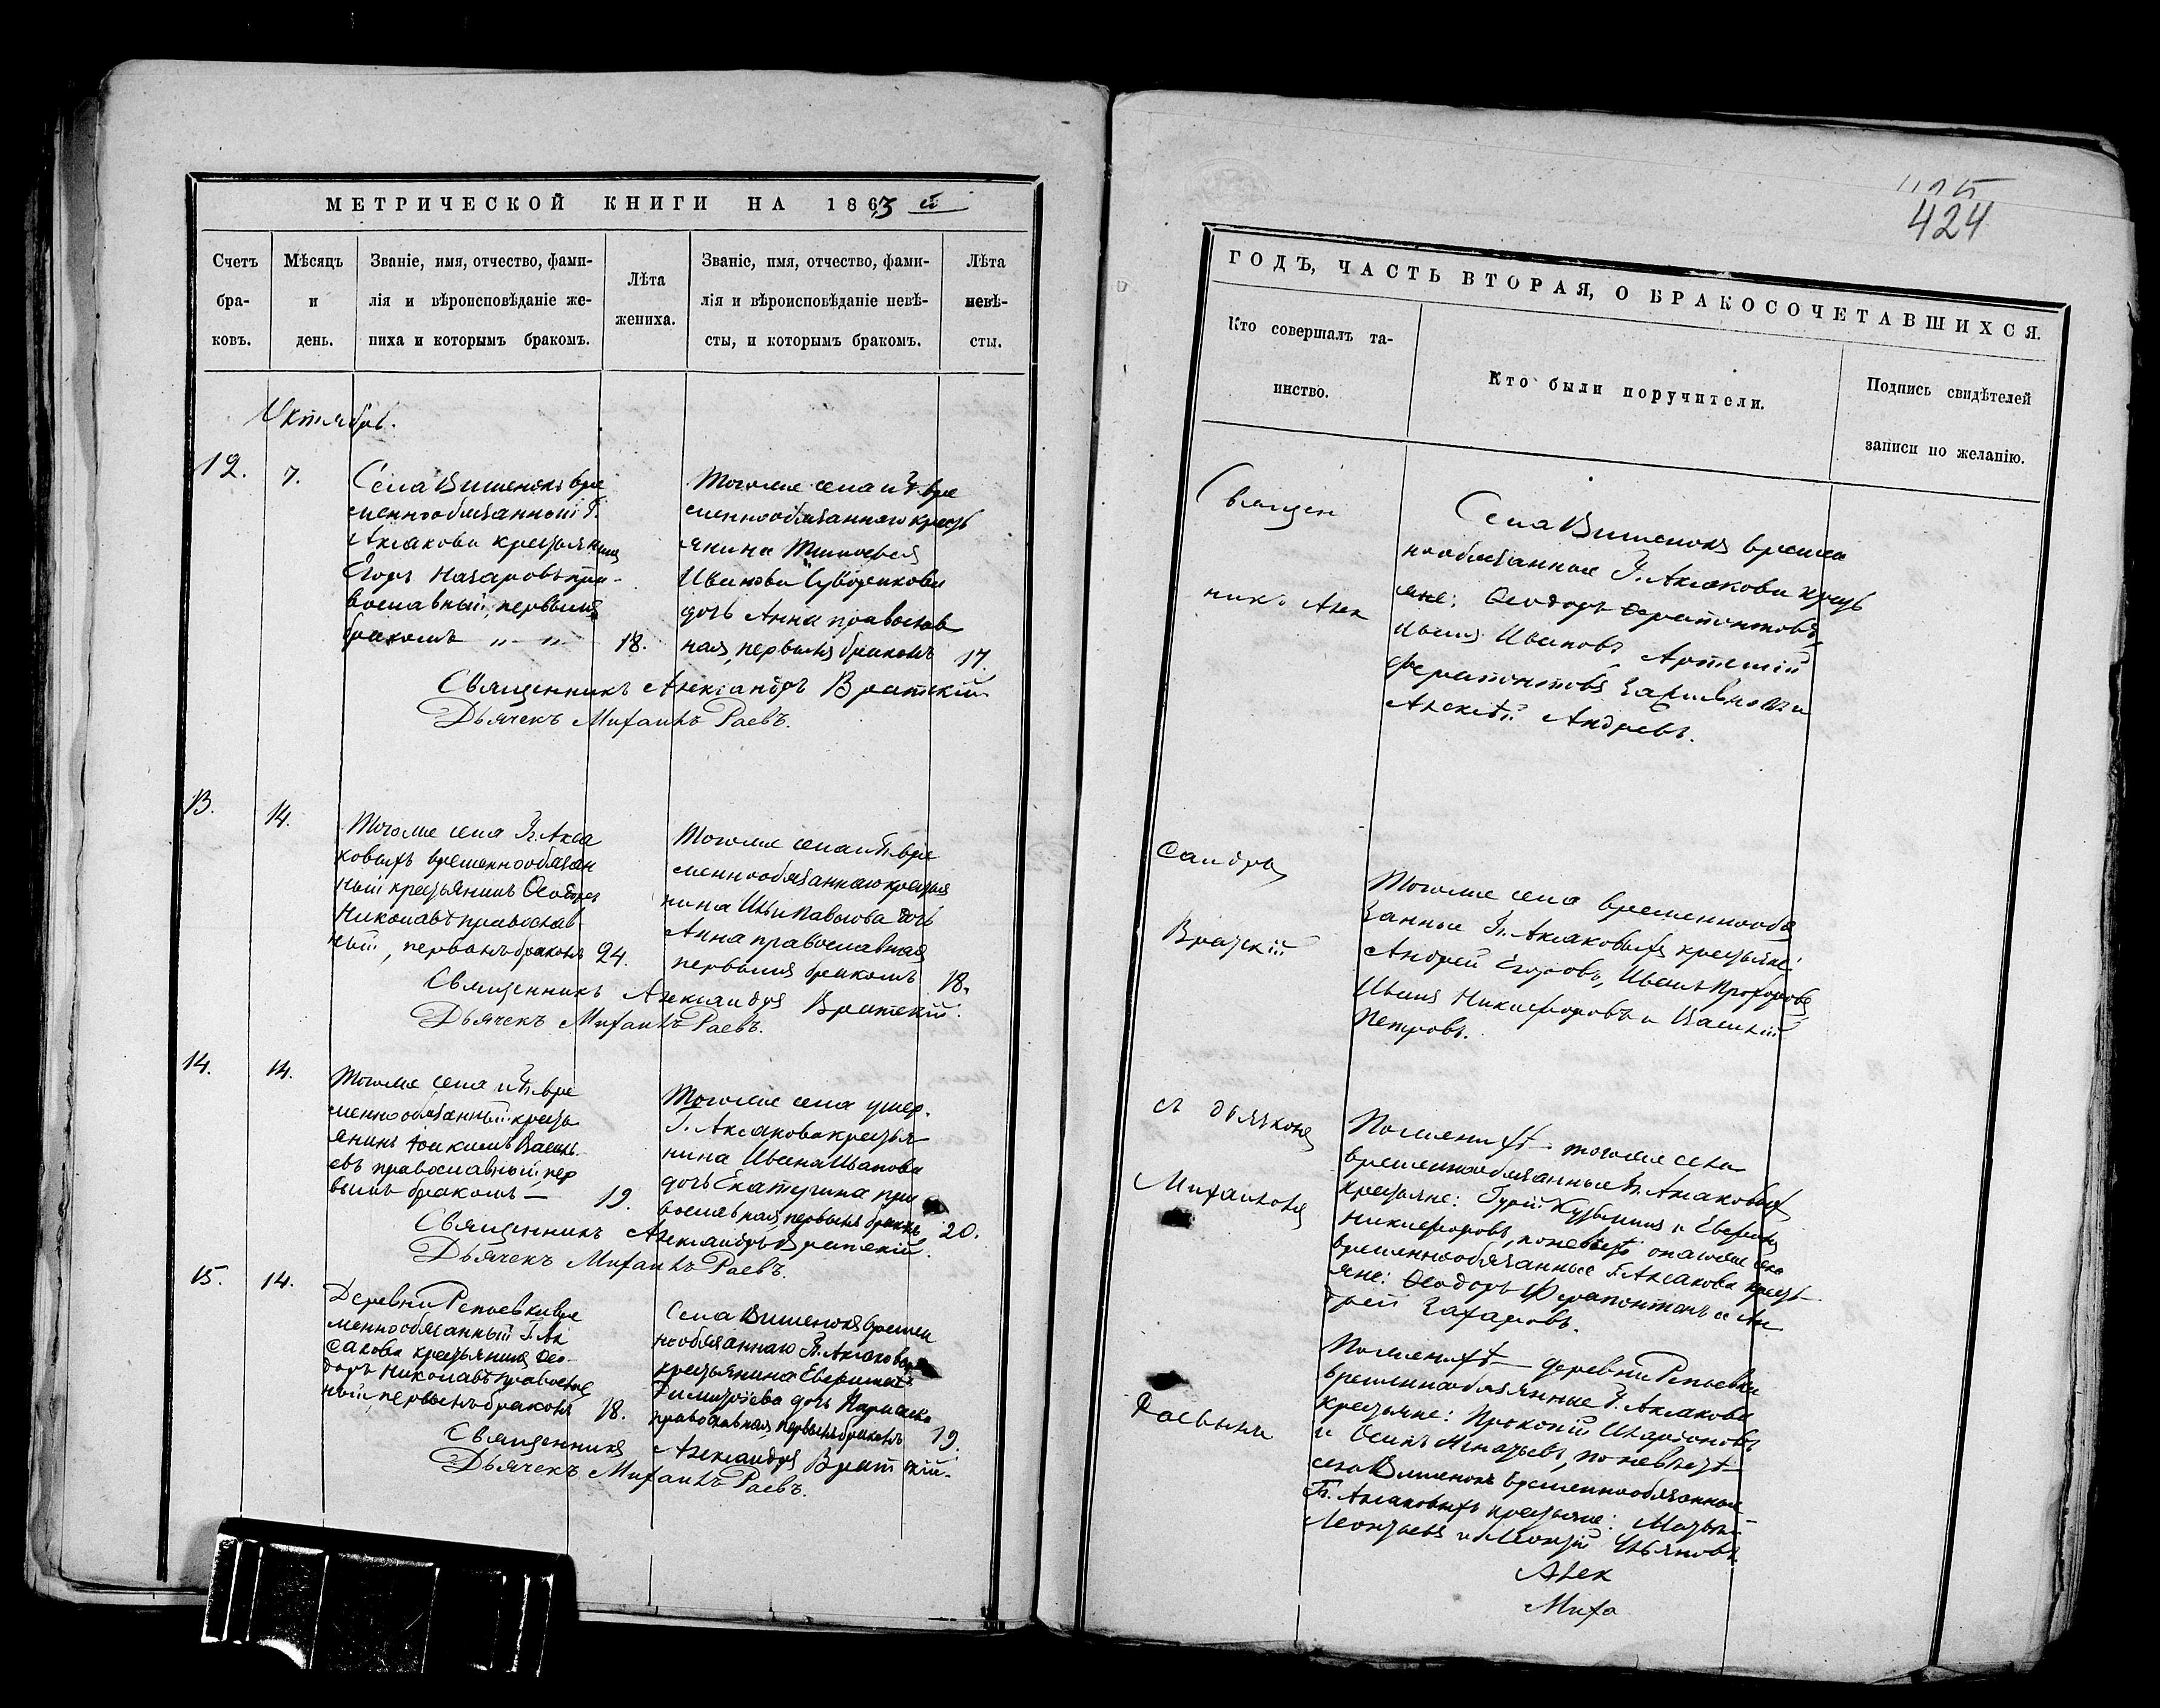 МЕТРИЧЕСКОЙ КНИГИ НА 1863 й
Счетъ бра- ковъ.
Мѣсяцъ и день.
Званіе, имя, отчество, фами-
лія и вѣроисповѣданіе же-
ниха и которымъ бракомъ.
Лѣта
жениха.
Званіе, имя, отчество, фами-
лія и вѣроисповѣданіе невѣ-
сты, и которымъ бракомъ.
Лѣта
невѣ-
сты.
Октябрь.
12.
7.
Села Вишенокъ вре
меннообязанный Г.
Аксакова крестьянинъ
Егоръ Назаровъ пра-
вославный, первымъ
бракомъ „ „
18.
Тогоже села и Г. вре
меннообязаннаго кресть
янина Тимофея
Иванова
дочь Анна православ
ная, первымъ бракомъ
17.
Священникъ Александръ Вратскій.
Дьячекъ Михаилъ Раевъ.
13.
14.
Тогоже села Гг. Акса
ковыхъ временнообязан
ный крестьянинъ Ѳеодоръ
Николаевъ православ
ный, первымъ бракомъ
24.
Тогоже села и Гг. вре
меннообязаннаго крестья
нина Ильи Павлова дочь
Анна православная
первымъ бракомъ
18.
Священникъ Александръ Вратскій.
Дьячекъ Михаилъ Раевъ.
14.
14.
Тогоже села и Гг. вре
меннообязанный кресть
янинъ Іоакимъ Василь
евъ православный, пер
вымъ бракомъ —
19.
Тогоже села умер.
Г. Аксакова крестья
нина Ивана Иванова
дочь Екатерина пра
вославная, первымъ бракомъ
20.
Священникъ Александръ Вратскій.
Дьячекъ Михаилъ Раевъ.
15.
14.
Деревни Репьевки вре
меннообязанный Г. Ак
сакова крестьянинъ Ѳео-
доръ Николаевъ православ
ный, первымъ бракомъ
18.
Села Вишенокъ времен
нообязаннаго Гг. Аксаковыхъ
крестьянина
Димитріева дочь Параскева
православная, первымъ бракомъ
19.
Священникъ Александръ Вратскій.
Дьячекъ Михаилъ Раевъ.
424
ГОДЪ, ЧАСТЬ ВТОРАЯ, О БРАКОСОЧЕТАВШИХСЯ.
Кто совершалъ та-
инство.
Кто были поручители.
Подпись свидѣтелей
записи по желанію.
Священ
никъ Алек
сандръ
Вратскій
съ дьячкомъ
Михаиломъ
Раевымъ
Села Вишенокъ времен
нообязанные Г. Аксакова кресть
яне: Ѳеодоръ Ферапонтовъ,
Иванъ Ивановъ, Артемій
Ферапонтовъ и
Алексѣй Андреевъ.
Тогоже села временнообя
занные Гг. Аксаковыхъ крестьяне:
Андрей Егоровъ, Иванъ Прохоровъ,
Иванъ Никифоровъ и Василій
Петровъ.
По женихѣ — тогоже села
временнообязанные Гг. Аксаковыхъ
крестьяне: Гурій Кузьминъ и
Никифоровъ, по невѣстѣ онагоже села
временнообязанные Г. Аксакова кресть
яне: Ѳеодоръ Ферапонтовъ и Ан
дрей Захаровъ.
По женихѣ — деревни Репьевки
временнообязанные Г. Аксакова
крестьяне: Прокопій Иларіоновъ
и Осипъ Игнатьевъ, по невѣстѣ —
села Вишенокъ временнообязанные
Гг. Аксаковыхъ крестьяне:
Леонтьевъ и Леонтій Ульяновъ.
Алек
Миха